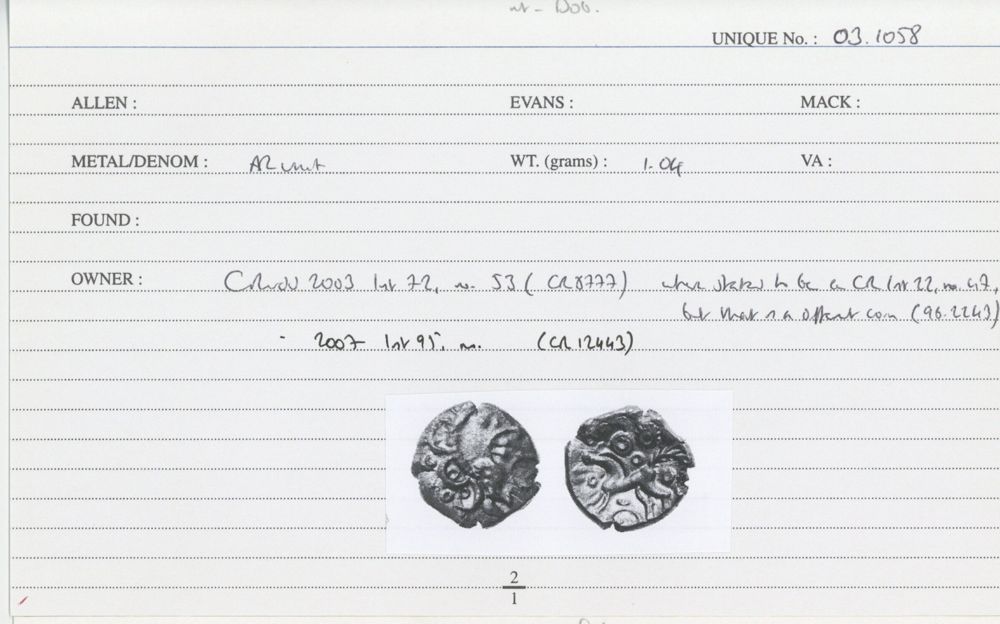 - Dob.
UNIQUE No. : 03.1058
ALLEN : EVANS : MACK :
METAL/DENOM : AR unit WT. (grams) : 1.04 VA :
FOUND :
OWNER : 2003 lst 72, no. 53 (CR8777) where stated to be ex CR lst 22, no. 47,
but that is a different coin (96.2243)
" 2007 lst 95, no. (CR 12443)
2
1